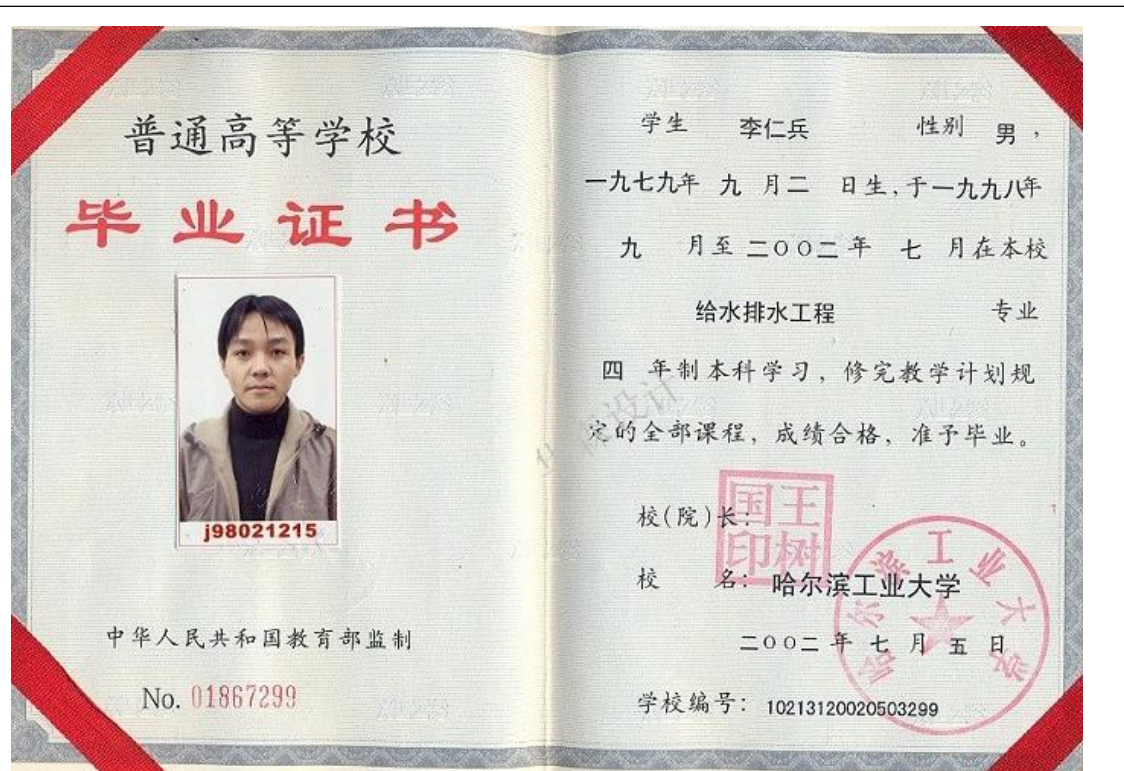 普通高等学校
毕业证书
j98021215
中华人民共和国教育部监制
No. 01867299
学生 李仁兵 性别 男，
一九七九年 九 月二 日生，于一九九八年
九 月至 二〇〇二 年 七 月在本校
给水排水工程 专业
四 年制本科学习，修完教学计划规
定的全部课程，成绩合格，准予毕业。
校(院)长：
国王
印树
校 名：哈尔滨工业大学
哈尔滨工业大学
二〇〇二 年 七 月 五 日
学校编号：10213120020503299